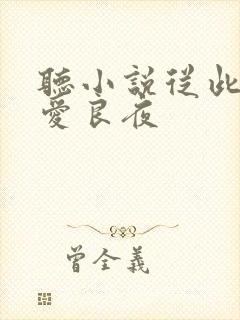 聽小說從此
愛良夜
曾全義